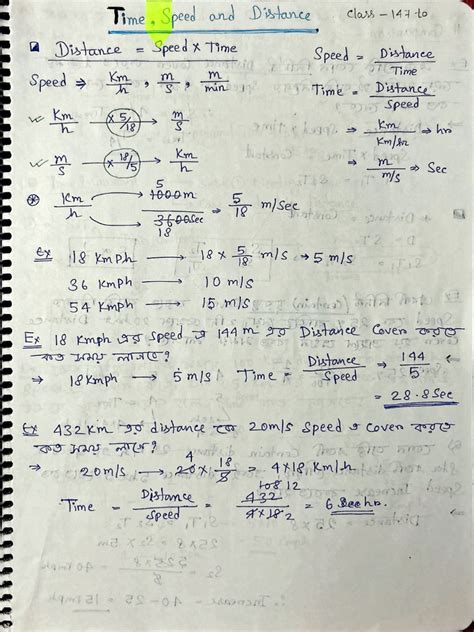 Time, Speed and Distance
Class - 147 to
Distance = Speed × Time
Speed = Distance / Time
Speed ⇒ Km/h , m/s , m/min
Time = Distance / Speed
Km/h → × 5/18 → m/s
⇒ Km / Km/hr ⇒ hr
m/s → × 18/5 → Km/h
⇒ m / m/s ⇒ Sec
Km/h → 1000m 5 / 3600sec 18 → 5/18 m/sec
Ex 18 KmPh → 18 × 5/18 m/s → 5 m/s
36 KmPh → 10 m/s
54 KmPh → 15 m/s
Ex 18 Kmph এর Speed এ 144 m এর Distance Cover করতে
কত সময় লাগবে?
⇒ 18 Kmph → 5 m/s Time = Distance / Speed → 144 / 5
= 28.8 Sec
Ex 432 Km এর distance কে 20m/s Speed এ Cover করতে
কত সময় লাগে?
⇒ 20m/s → 20 4 × 18/5 = 4×18 Km/h
Time = Distance / Speed = 432 108 12 / 4×18 2 = 6 hr.